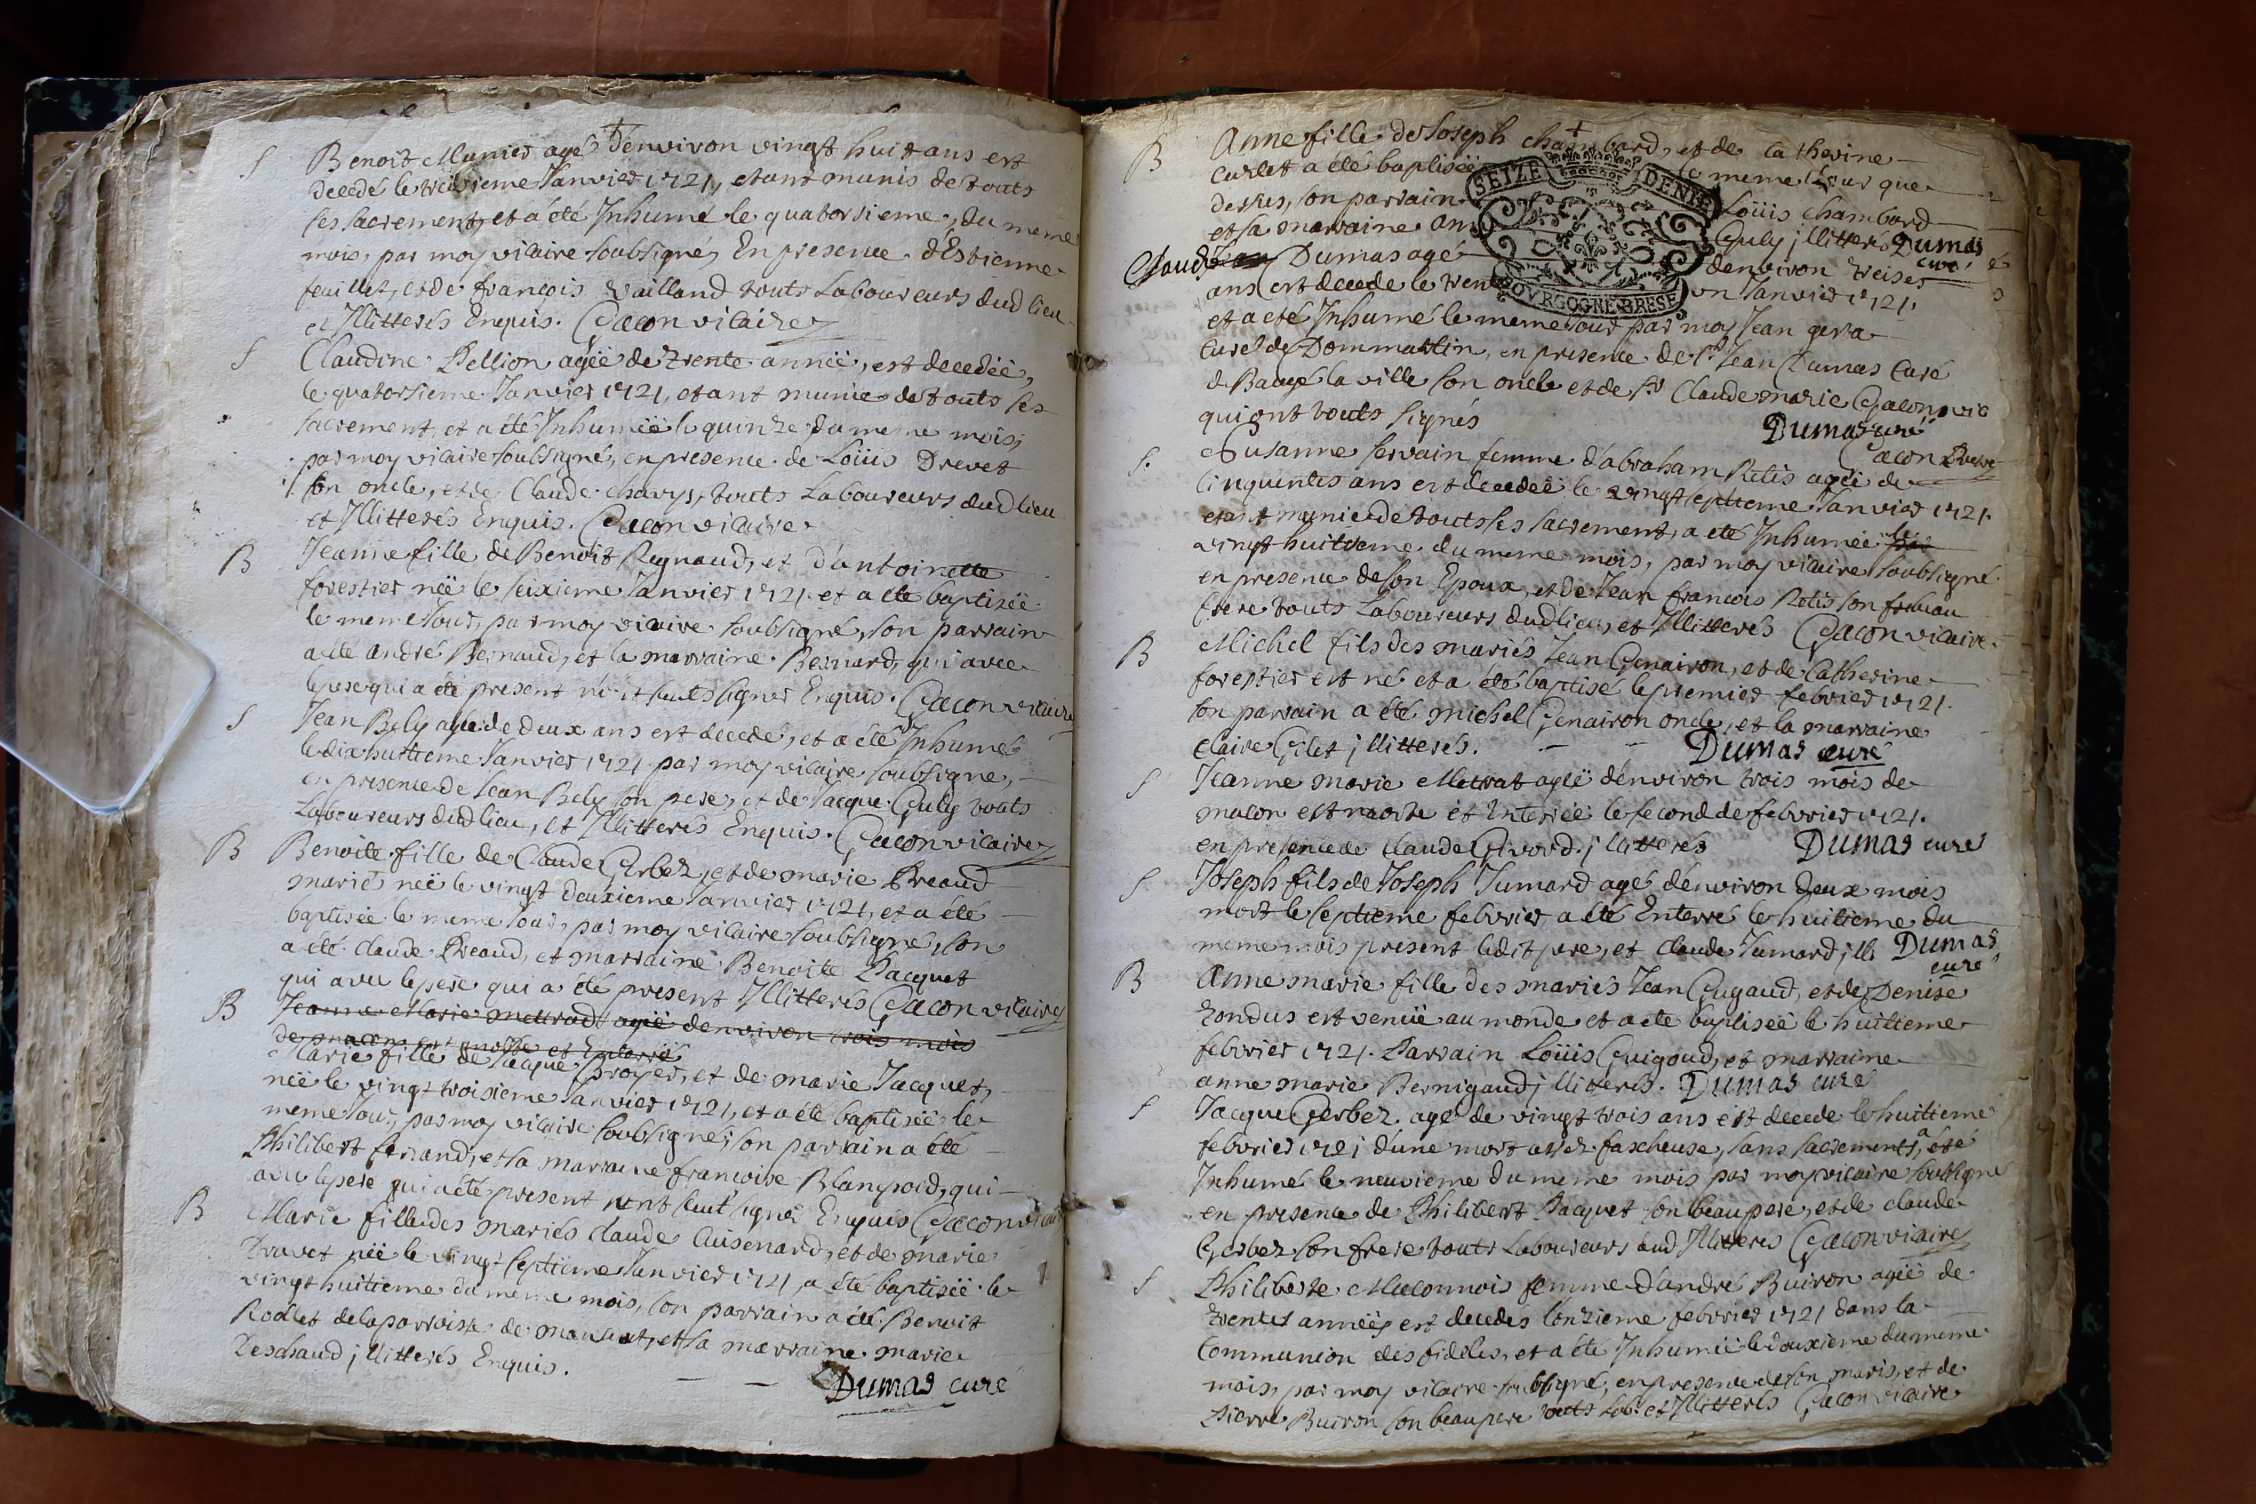 S Benoit Munier agé d'environ vingt huit ans est
decedé le treisieme Janvier 1721, etant munis de touts
ses sacrements et a été Inhumé le quatorsieme, du meme
mois, par moy vicaire soubsigné, En presence d'Estienne
feuillet, et de françois Vailland touts Laboureurs dud lieu
et Illitterés Enquis. Gacon vicaire
S Claudine Pellion agëe de trente année, est decedëe,
le quatorsieme Janvier 1721, etant munie de touts ses
sacrement, et a été Inhumëe le quinze du meme mois,
par moy vicaire soubsigné, en presence de Loüis Drevet
son oncle, et de Claude Charys, touts Laboureurs dud lieu
et Illitterés Enquis. Gacon vicaire
B Jeanne fille de Benoit Regnaud, et d'antoinette
forestier nëe le seixieme Janvier 1721 et a été baptisëe
le meme jour, par moy vicaire soubsigné, son parrain
a été andré Bernaud, et la marraine Bernard, qui avec
le pere qui a été present n'ont sceuts signer Enquis. Gacon vicaire
S Jean Bely agé de deux ans est decedé, et a été Inhumé
le dix huitieme Janvier 1721 par moy vicaire soubsigné,
en presence de Jean Bely son pere, et de Jacque Guly touts
Laboureurs dud lieu, et Illitterés Enquis. Gacon vicaire
B Benoite fille de Claude Gerbez, et de marie Preaud
marié nëe le vingt deuxieme Janvier 1721, et a été
baptisëe le meme jour, par moy vicaire soubsigné, son
a été claude Preaud, et marraine Benoite Pacquet
qui avec le pere qui a été present Illitterés Gacon vicaire
B Jeanne Marie mettradt agëe denviron trois mois
de macon est morte et Enterré
Marie fille de Jacque Broyer, et de marie Jacquet,
nëe le vingt troisieme Janvier 1721, et a été baptisëe le
meme jour, par moy vicaire soubsigné, son parrain a été
Philibert ferrand, et la marraine francoise Blanpoid, qui
avec le pere qui a été present n'ont sceut signer Enquis Gacon vicaire
B Marie fille des mariés claude Cuisenard, et de marie
Drevet nëe le vingt septieme Janvier 1721, a été baptisëe le
vingt huitieme du meme mois, son parrain a été Benoit
Rodet de la parroisse de mansiat, et la marraine marie
Deschaud illitterés Enquis.
Dumas curé
B Anne fille de Joseph chambard, et de catherine
Curlet a été baptisëe le meme Jour que
dessus, son parrain Loüis chambard
et sa marraine an Guly illitteré Dumas
curé
SEIZE DENIE
BOVRGOGNE BRESE
Claude Dumas agé denviron treise
ans est decede le tren on Janvier 1721.
et a eté Inhumé le meme Jour par moy Jean gerra
Curé de Dommartin, en presence de Sr Jean Dumas Curé
de Baugé la ville son oncle et de Sr Claude marie Gacon vic
qui ont touts signés Dumas curé
Gacon
S. Susanne servain femme d'abraham Retis agëe de
Cinquentes ans est decedëe le vingt septieme Janvier 1721.
etant munie de touts ses sacrement, a été Inhumëe le
vingt huitieme du meme mois, par moy vicaire soubsigné
en presence de son Epoux, et de Jean francois Retis son
frere touts Laboureurs dud lieu, et Illitterés Gacon vicaire
B Michel fils des mariés Jean Genairon, et de Catherine
forestier est né et a été baptisé le premier febvrier 1721.
son parrain a été michel Genairon oncle, et la marraine
Claire Gilet illitterés. Dumas curé
S Jeanne marie Mettrat agëe d'environ trois mois de
macon est morte et Enterrée le second de febvrier 1721.
en presence de claude Girord. illitterés Dumas curé
S Joseph fils de Joseph Jumard agé d'environ deux mois
mort le septieme febvrier a été Enterré le huitieme du
meme mois present ledit pere, et claude Jumard ill Dumas
curé
B Anne marie fille des mariés Jean Gugaud, et de Denise
Tondus est venüe au monde et a été baptisëe le huitieme
febvrier 1721. Parrain Loüis Guigaud, et marraine
anne marie Bernigaud illitterés. Dumas curé
S Jacque Gerbez agé de vingt trois ans est decede le huitieme
febvrier 1721 d'une mort assez fascheuse, sans sacrements, a été
Inhumé le neuvieme du meme mois par moy vicaire soubsigné
en presence de Philibert Pacquet son beaupere, et de claude
Gerbez son frere touts Laboureurs dud Illitteres Gacon vicaire
S Philiberte Maconnois femme d'andré Buiron agëe de
trentes années est decedës l'onzieme febvrier 1721 dans la
Communion des fideles, et a été Inhumëe le douxieme du meme
mois, par moy vicaire soubsigné, en presence de son maris, et de
pierre Buiron son beaupere touts Labr et Illitterés Gacon vicaire